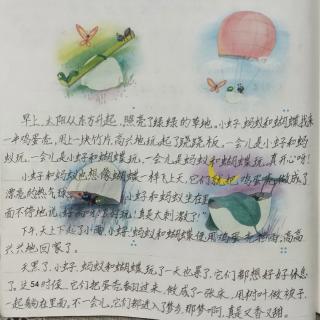 早上,太阳从东方升起,照亮了绿绿的草地。小蚜子,蚂蚁和蝴蝶找来
一半鸡蛋壳,用上一块竹片,高兴地玩起了跷跷板,一会儿是小虫子和蚂
蚁玩,一会儿是小虫子和蝴蝶玩,一会儿是蚂蚁和蝴蝶玩,真开心呀!
小虫子和蚂蚁也想像蝴蝶一样飞上天,它们就把鸡蛋壳做成了
漂亮的热气球。小虫子和蚂蚁坐在里
面不停地说:"好高啊!好玩!真是太刺激了!"
下午,天上下起了小雨,小虫子,蚂蚁和蝴蝶使用鸡蛋壳
兴兴地回家了。
天黑了,小虫子、蚂蚁和蝴蝶玩了一天也累了,它们都想好好休息
了。这54时候,它们把蛋壳翻过来,做成了一张床,用树叶做被子,
一起躺在里面,不一会儿,它们都进入了梦乡,那梦啊,真是又香又甜。